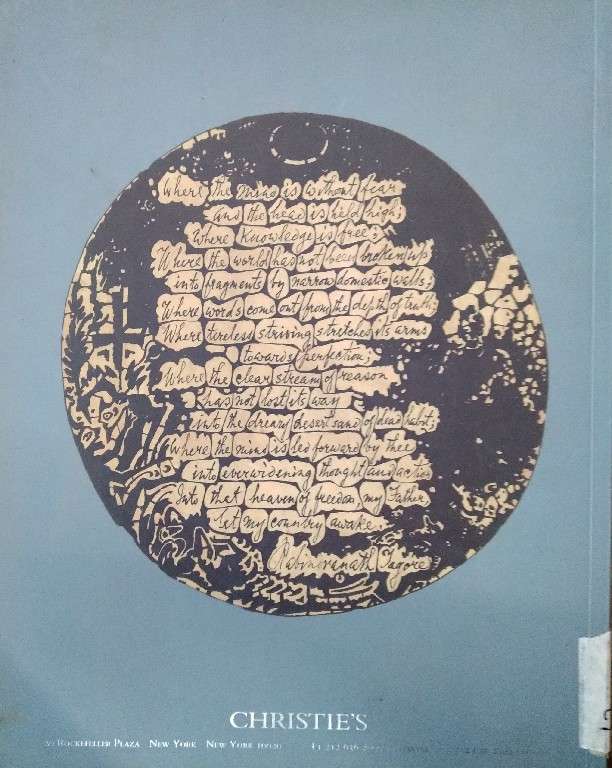 Where the mind is without fear
and the head is held high;
Where knowledge is free;
Where the world has not been broken up
into fragments by narrow domestic walls;
Where words come out from the depth of truth;
Where tireless striving stretches its arms
towards perfection;
Where the clear stream of reason
has not lost its way
into the dreary desert sand of dead habit;
Where the mind is led forward by thee
into everwidening thought and action
Into that heaven of freedom, my Father,
let my country awake.
Rabindranath Tagore
CHRISTIE'S
20 ROCKEFELLER PLAZA NEW YORK NEW YORK 10020